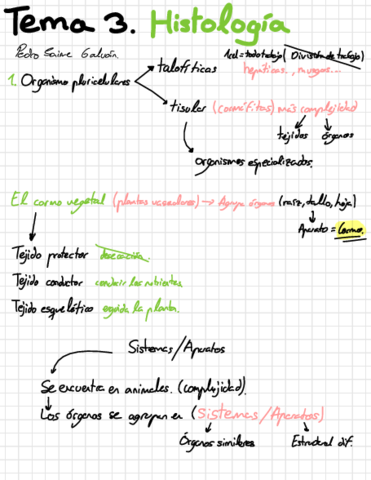 Tema 3. Histología
Pedro Jaime Galván.
1cel = todo trabajo (División de trabajo)
talofíticas hepáticas., musgos...
1. Organismo pluricelulares
tisular (cormófitas) más complejidad
tejidos órganos
organismos especializados.
El cormo vegetal (plantas vasculares) → Agrupa órganos (raíz, tallo, hoja)
Aparato = Cormo.
Tejido protector desecación.
Tejido conductor conducir los nutrientes.
Tejido esquelético erguida la planta.
Sistemas/Aparatos
Se encuentra en animales. (complejidad).
Los órganos se agrupan en (Sistemas/Aparatos)
Órganos similares Estructural dif.